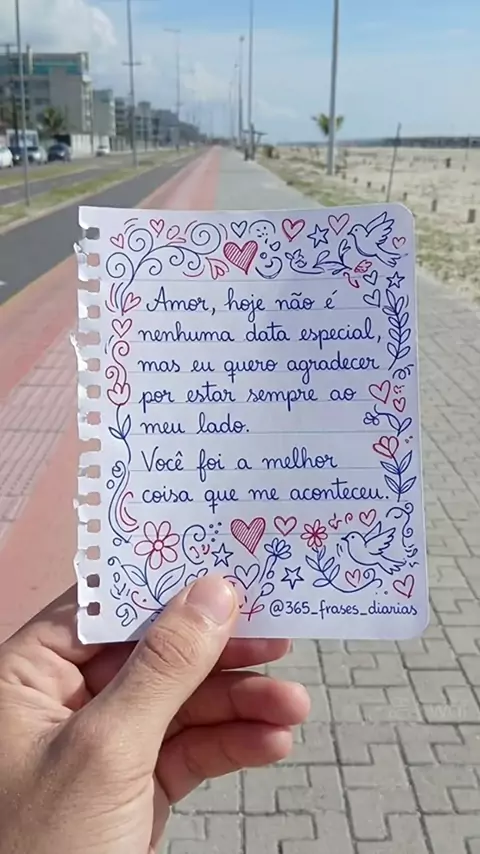 Amor, hoje não é
nenhuma data especial,
mas eu quero agradecer
por estar sempre ao
meu lado.
Você foi a melhor
coisa que me aconteceu.
@365_frases_diarias